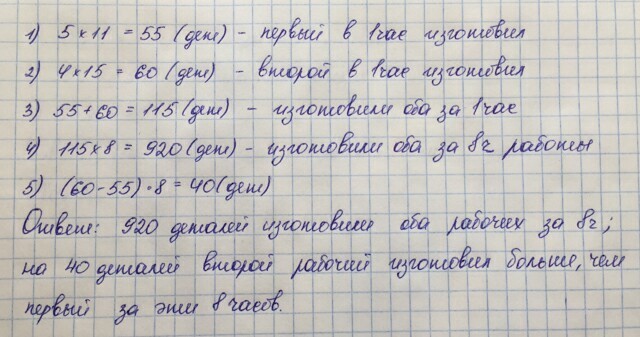 1) 5×11 = 55 (дет) - первый в 1час изготовил
2) 4×15 = 60 (дет) - второй в 1час изготовил
3) 55+60 = 115 (дет) - изготовили оба за 1час
4) 115×8 = 920 (дет) - изготовили оба за 8ч работы
5) (60-55)·8 = 40 (дет)
Ответ: 920 деталей изготовили оба рабочих за 8ч;
на 40 деталей второй рабочий изготовил больше, чем
первый за эти 8 часов.